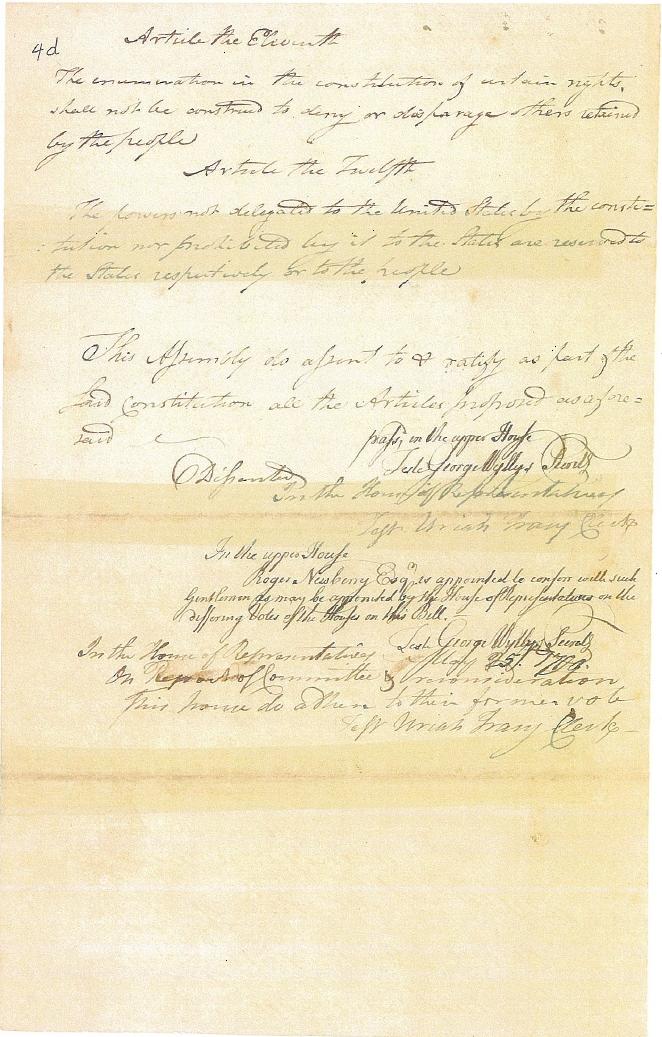 4d
Article the Eleventh
The enumeration in the constitution of certain rights,
shall not be construed to deny or disparage others retained
by the people
Article the Twelfth
The powers not delegated to the United States by the consti=
tution nor prohibited by it to the States are reserved to
the States respectively or to the people
This Assembly do assent to & ratify as part of the
said Constitution all the Articles proposed as afore=
said
pass'd in the upper House
Test George Wyllys Secrety
Dissented
In the House of Representatives
Test Uriah Tracy Clerk
In the upper House
Roger Newberry Esqr is appointed to confer with such
Gentlemen as may be appointed by the House of Representatives on the
differing Votes of the Houses on this Bill.
Test George Wyllys Secrety
In the House of Representatives May 25. 1790.
On Report of Committee & reconsideration
This house do adhere to their former vote
Test Uriah Tracy Clerk